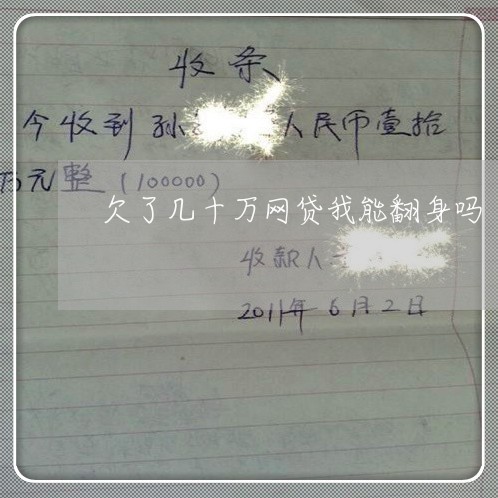 收条
今收到孙 人民币壹拾
万元整（100000）
欠了几十万网贷我能翻身吗
收款人
2011年6月2日